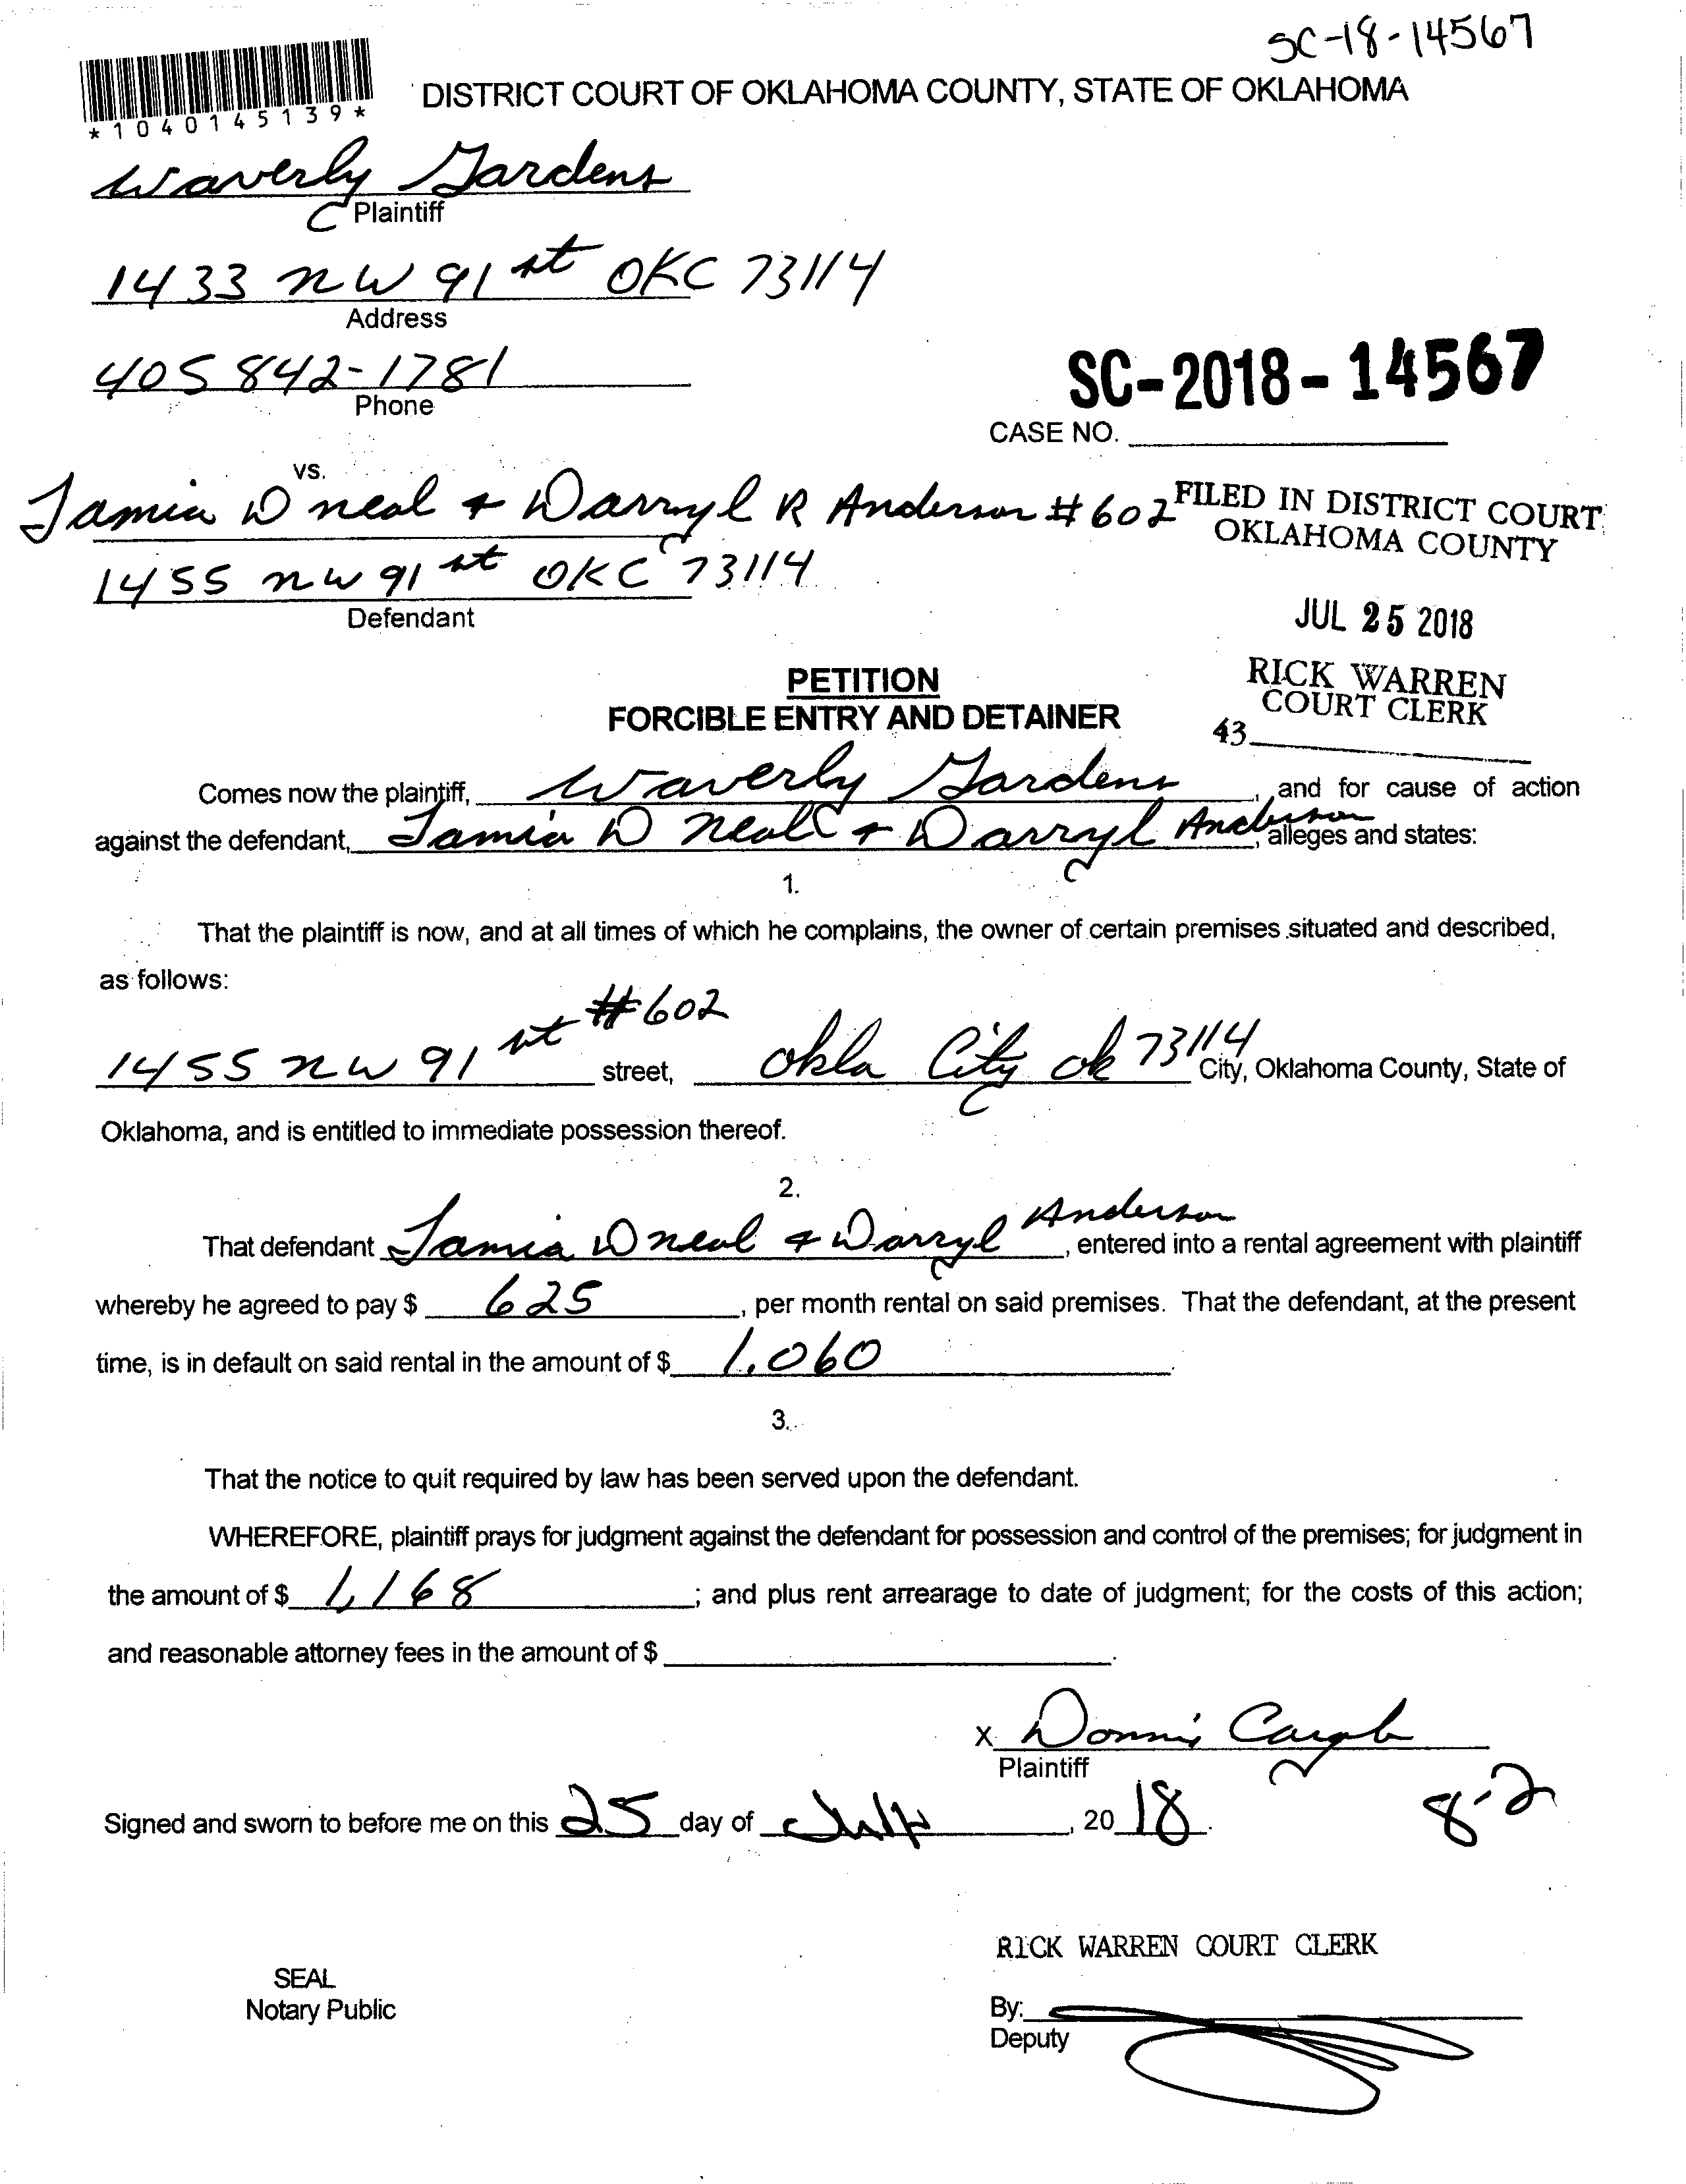 SC-18-14567
*1040145139*
DISTRICT COURT OF OKLAHOMA COUNTY, STATE OF OKLAHOMA
Waverly Gardens
Plaintiff
1433 NW 91 st OKC 73114
Address
405 842-1781
Phone
SC-2018-14567
CASE NO.
vs.
Jamia D neal + Darryl R Anderson #602
1455 nw 91 st OKC 73114
Defendant
FILED IN DISTRICT COURT
OKLAHOMA COUNTY
JUL 25 2018
RICK WARREN
COURT CLERK
43
PETITION
FORCIBLE ENTRY AND DETAINER
Comes now the plaintiff, Waverly Gardens, and for cause of action
against the defendant, Jamia D neal + Darryl Anderson, alleges and states:
1.
That the plaintiff is now, and at all times of which he complains, the owner of certain premises situated and described,
as follows:
1455 nw 91 st #602 street, Okla City ok 73114 City, Oklahoma County, State of
Oklahoma, and is entitled to immediate possession thereof.
2.
That defendant Jamia D neal + Darryl Anderson, entered into a rental agreement with plaintiff
whereby he agreed to pay $ 625, per month rental on said premises. That the defendant, at the present
time, is in default on said rental in the amount of $ 1,060.
3.
That the notice to quit required by law has been served upon the defendant.
WHEREFORE, plaintiff prays for judgment against the defendant for possession and control of the premises; for judgment in
the amount of $ 1,168; and plus rent arrearage to date of judgment; for the costs of this action;
and reasonable attorney fees in the amount of $ .
X Donni
Plaintiff
Signed and sworn to before me on this 25 day of July, 20 18.
8-2
RICK WARREN COURT CLERK
SEAL
Notary Public
By:
Deputy